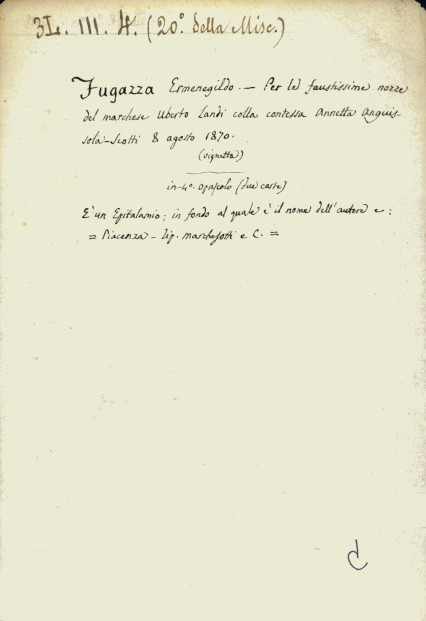 3L. III. 4. (20º della Misc.)
Fugazza Ermenegildo. — Per le faustissime nozze
del marchese Uberto Landi colla contessa Annetta Anguis
sola-Scotti 8 agosto 1870.
(vignetta)
in-4º. opuscolo (due carte)
E' un Epitalamio; in fondo al quale è il nome dell'autore e:
= Piacenza - Tip. Marchesotti e C. =